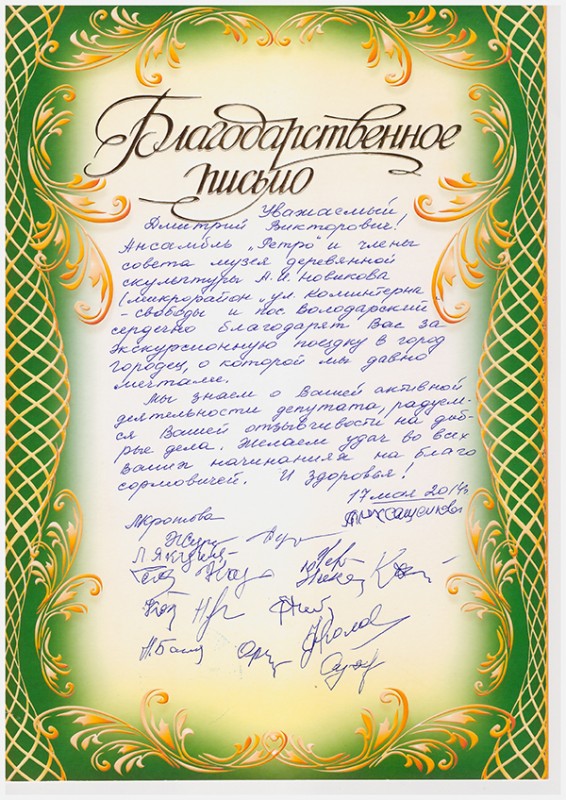 Благодарственное
письмо
Уважаемый
Дмитрий Викторович!
Ансамбль „Ретро" и члены
совета музея деревянной
скульптуры А.И. Новикова
(микрорайон „ул. Коминтерна
- Свободы и пос. Володарский
сердечно благодарят Вас за
экскурсионную поездку в город
Городец, о которой мы давно
мечтали.
Мы знаем о Вашей активной
деятельности депутата, радуем-
ся Вашей отзывчивости на доб-
рые дела. Желаем удач во всех
Ваших начинаниях на благо
сормовичей. И здоровья!
17 мая 2014г